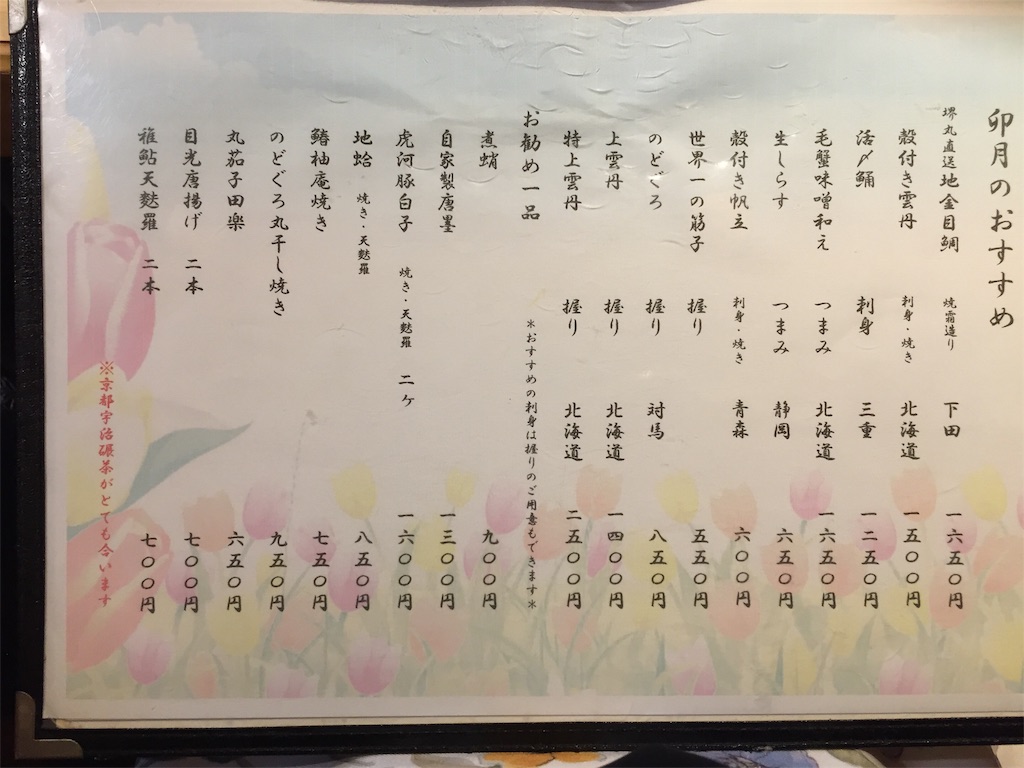 卯月のおすすめ
堺丸直送地金目鯛 焼霜造り 下田 一六五〇円
殻付き雲丹 刺身・焼き 北海道 一五〇〇円
活〆鯒 刺身 三重 一二五〇円
毛蟹味噌和え つまみ 北海道 一六五〇円
生しらす つまみ 静岡 六五〇円
殻付き帆立 刺身・焼き 青森 六〇〇円
世界一の筋子 握り 五五〇円
のどぐろ 握り 対馬 八五〇円
上雲丹 握り 北海道 一四〇〇円
特上雲丹 握り 北海道 二五〇〇円
お勧め一品 *おすすめの刺身は握りのご用意もできます*
煮蛸 九〇〇円
自家製唐墨 一三〇〇円
虎河豚白子 焼き・天麩羅 二ケ 一六〇〇円
地蛤 焼き・天麩羅 八五〇円
鰆柚庵焼き 七五〇円
のどぐろ丸干し焼き 九五〇円
丸茄子田楽 六五〇円
目光唐揚げ 二本 七〇〇円
稚鮎天麩羅 二本 七〇〇円
※京都宇治碾茶がとても合います